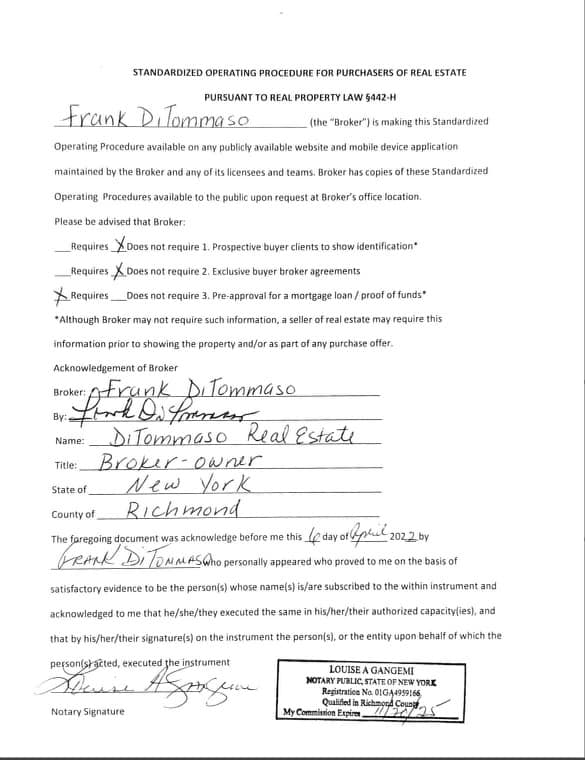 STANDARDIZED OPERATING PROCEDURE FOR PURCHASERS OF REAL ESTATE
PURSUANT TO REAL PROPERTY LAW §442-H
Frank DiTommaso (the "Broker") is making this Standardized
Operating Procedure available on any publicly available website and mobile device application
maintained by the Broker and any of its licensees and teams. Broker has copies of these Standardized
Operating Procedures available to the public upon request at Broker's office location.
Please be advised that Broker:
___Requires X Does not require 1. Prospective buyer clients to show identification*
___Requires X Does not require 2. Exclusive buyer broker agreements
X Requires ___Does not require 3. Pre-approval for a mortgage loan / proof of funds*
*Although Broker may not require such information, a seller of real estate may require this
information prior to showing the property and/or as part of any purchase offer.
Acknowledgement of Broker
Broker: Frank DiTommaso
By: Frank DiTommaso
Name: DiTommaso Real Estate
Title: Broker-owner
State of New York
County of Richmond
The foregoing document was acknowledge before me this day of April 2022 by
FRANK DiTOMMASO who personally appeared who proved to me on the basis of
satisfactory evidence to be the person(s) whose name(s) is/are subscribed to the within instrument and
acknowledged to me that he/she/they executed the same in his/her/their authorized capacity(ies), and
that by his/her/their signature(s) on the instrument the person(s), or the entity upon behalf of which the
person(s) acted, executed the instrument
Louise A Gangemi
Notary Signature
LOUISE A GANGEMI
NOTARY PUBLIC, STATE OF NEW YORK
Registration No. 01GA4959166
Qualified in Richmond County
My Commission Expires 11/20/25